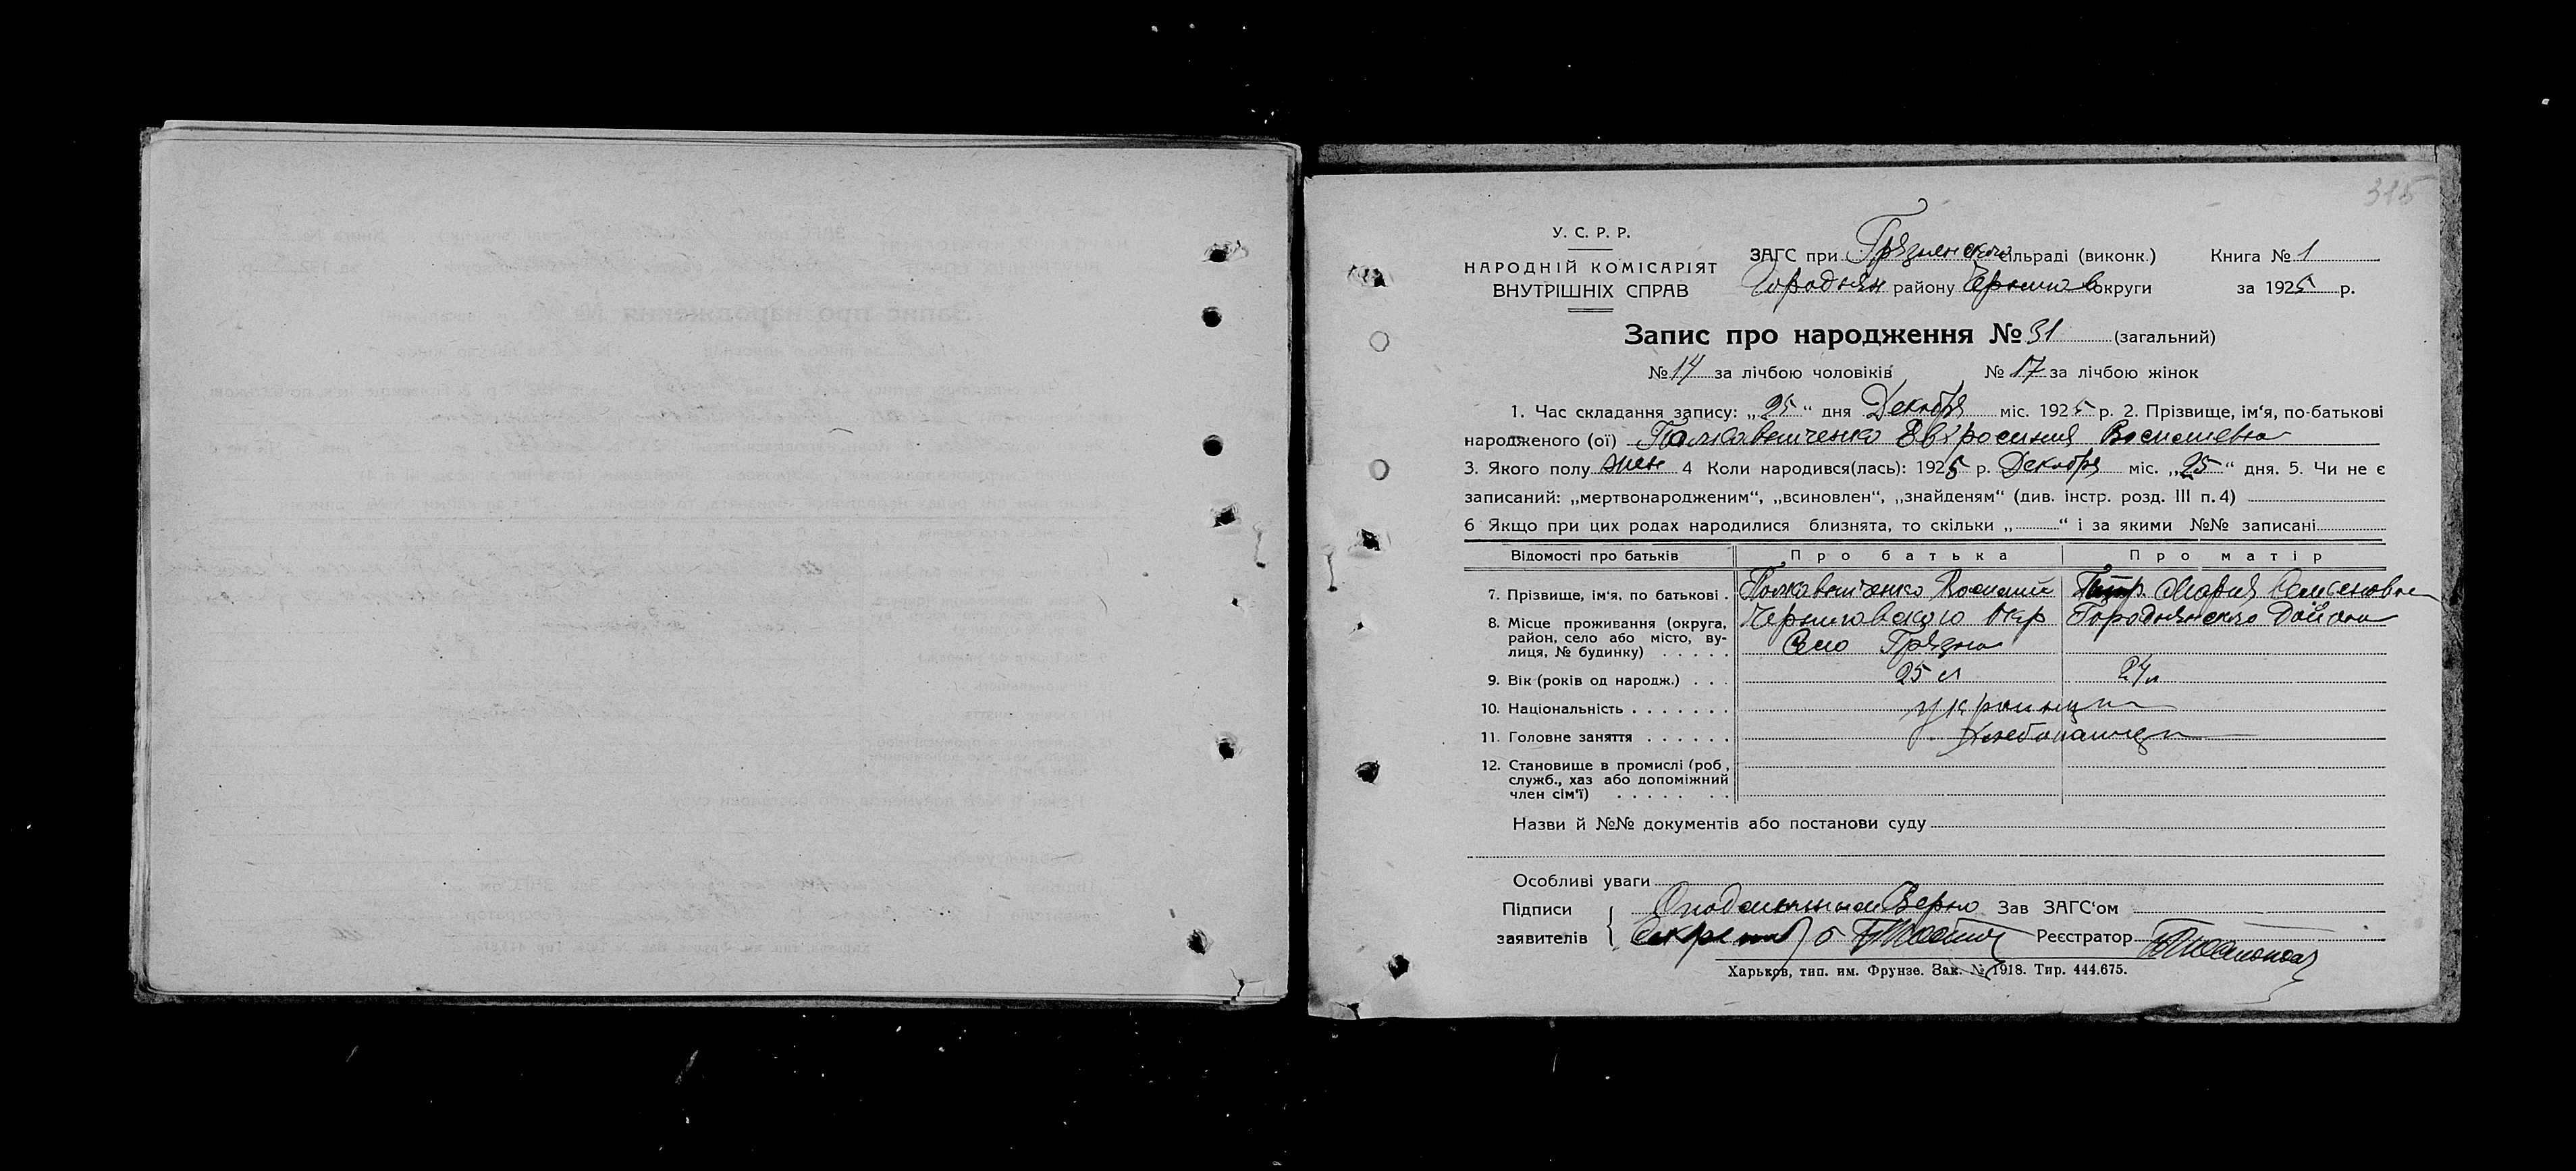 315
У. С. Р. Р.
НАРОДНІЙ КОМІСАРІЯТ
ВНУТРІШНІХ СПРАВ
ЗАГС при Грязнянского сільраді (виконк.) Книга № 1
Городнян району Чернигов округи за 1925 р.
Запис про народження № 31 (загальний)
№ 14 за лічбою чоловіків № 17 за лічбою жінок
1. Час складання запису: „25“ дня Декабря міс. 1925 р. 2. Прізвище, ім‘я, по-батькові
народженого (ої) Евфросиния
3. Якого полу жен 4 Коли народився(лась): 1925 р. Декабря міс. „25“ дня. 5. Чи не є
записаний: „мертвонародженим“, „всиновлен“, „знайденям“ (див. інстр. розд. III п. 4)
6 Якщо при цих родах народилися близнята, то скільки „ “ і за якими №№ записані
Відомості про батьків Про батька Про матір
7. Прізвище, ім‘я, по батькові . Мария Семеновна
8. Місце проживання (округа, Черниговского Окр Городнянского Району
район, село або місто, ву- Село Грязна
лиця, № будинку) . . . . .
9. Вік (років од народж.) . . . 25 л 24 л
10. Національність . . . . . . . украинцы
11. Головне заняття . . . . . . Хлебопашцы
12. Становище в промислі (роб,
служб., хаз або допоміжний
член сім‘ї) . . . . . . .
Назви й №№ документів або постанови суду
Особливі уваги
Підписи Верно Зав ЗАГС‘ом
заявителів Секретарь Реєстратор
Харьков, тип. им. Фрунзе. Зак. № 1918. Тир. 444.675.